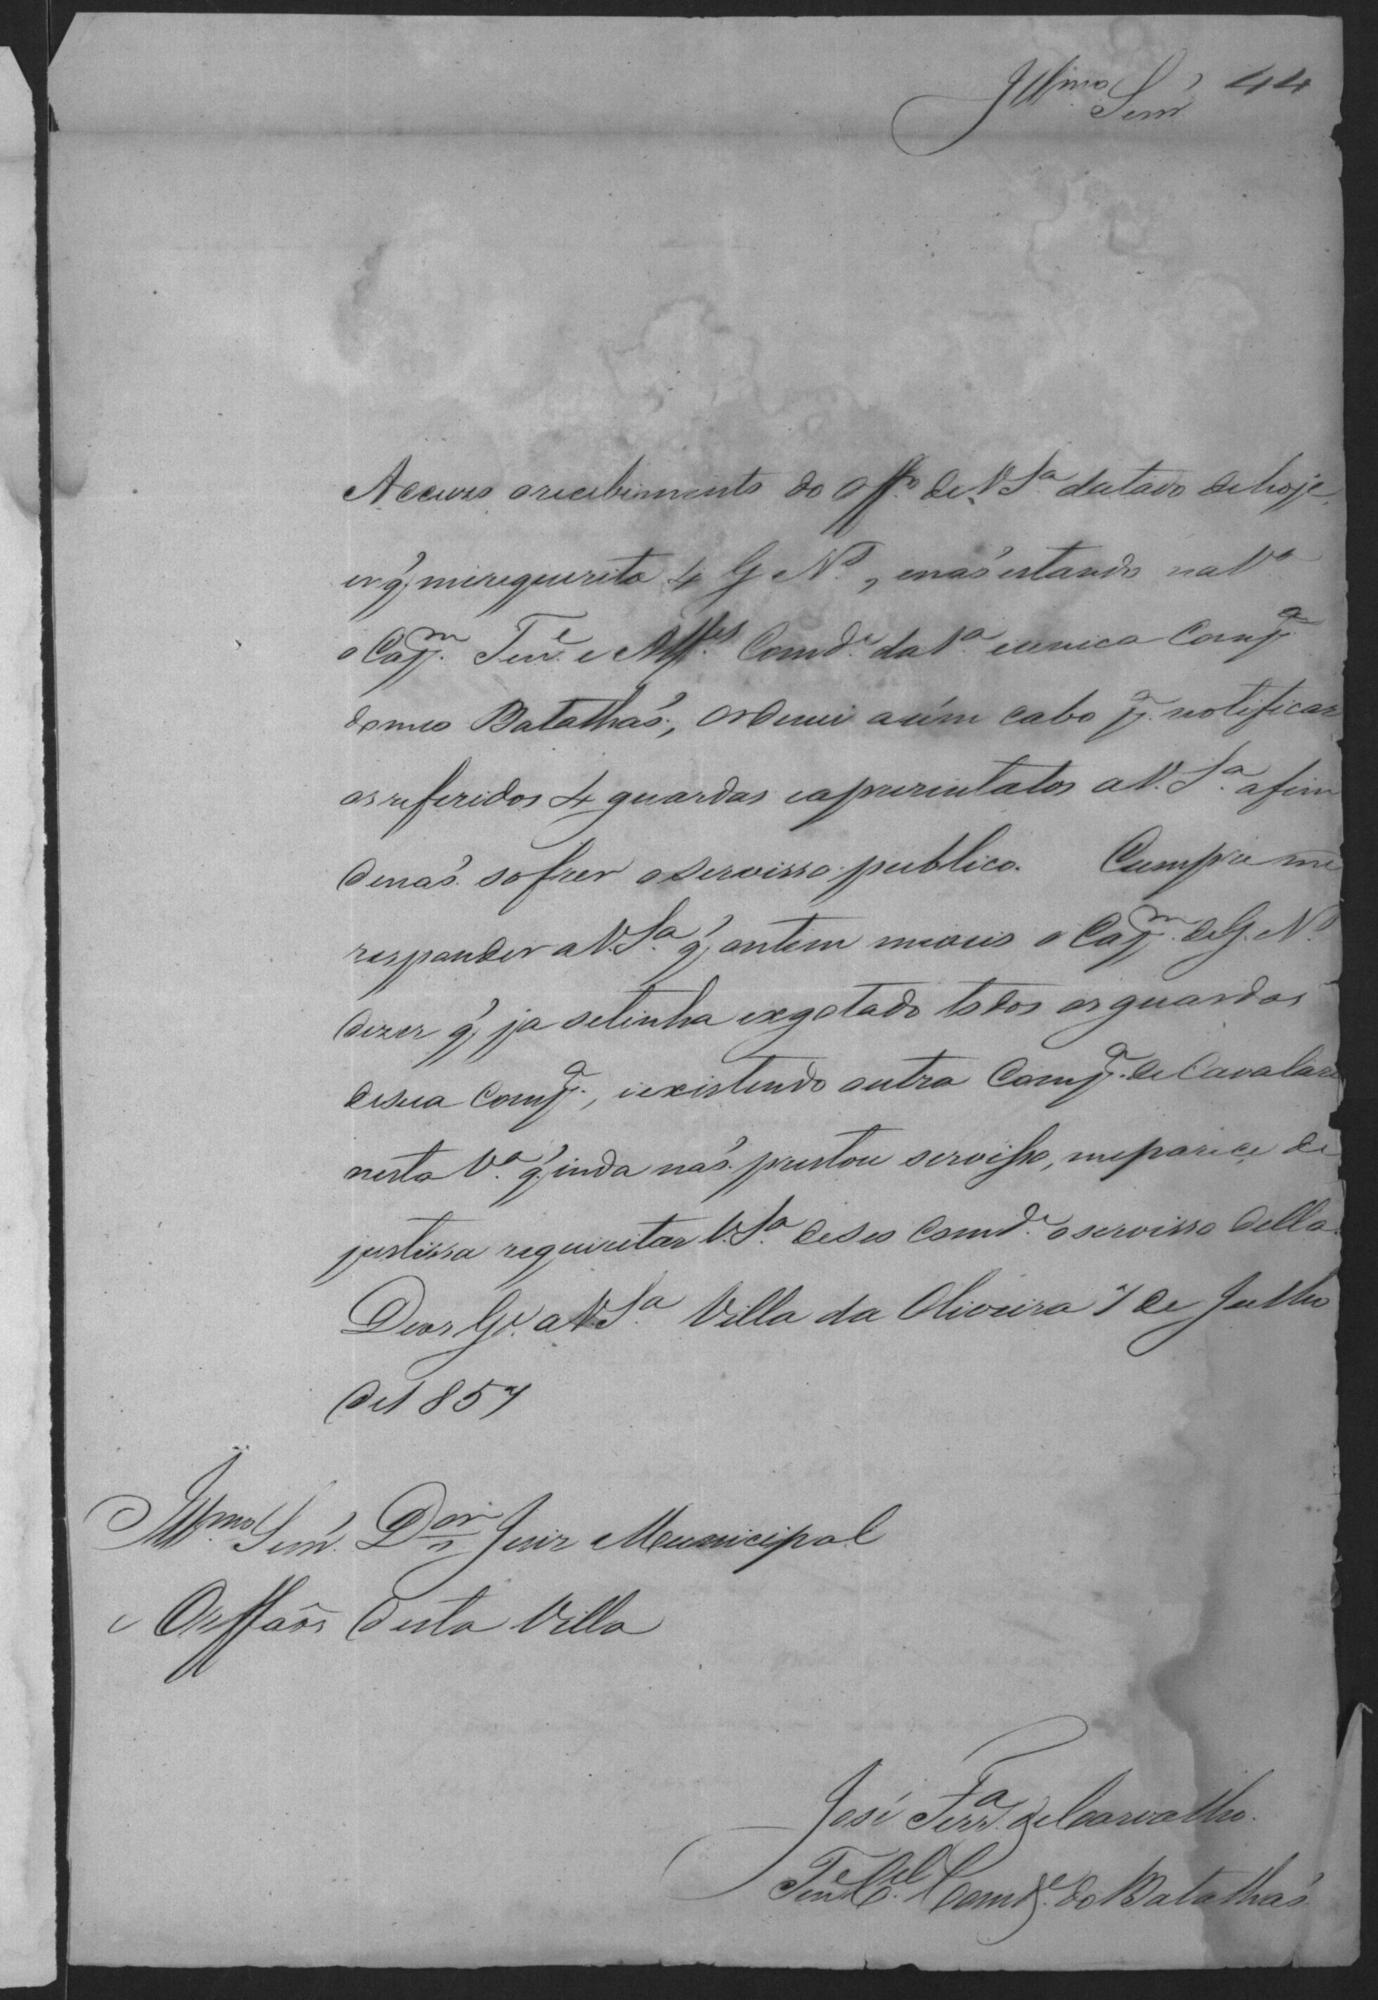 Illmo Senr 44
Accuzo o recebimento do Offo de V. Sa datado de hoje,
em q' me requezita 4 G Ns, e nás estando na Va
o Capm. Tene e Alffes Comde da 1a e unica Compa
do meo Batalhás, ordenei a úm cabo pa notificar
os referidos 4 guardas e aprezentalos a V. Sa. afim
de nás sofrer o servisso publico. Cumpre me
responder a V. Sa q' ontem o Capm. de G. Ns
dizer q' ja se tinha exgotado todos os guardas
de sua Compa., e existindo outra Compa. de Cavalara
nesta Va. q' inda nás prestou servisso, me parece de
justissa requizitar V. Sa. de seo Comde o servisso della.
Deos Ge. a V. Sa Villa da Oliveira 7 de Julho
de 1857
Illmo Senr. Dor Juiz Municipal
e Orffãos desta Villa
José Ferra de Carvalho.
Tene Cel. Comde. do Batalhás